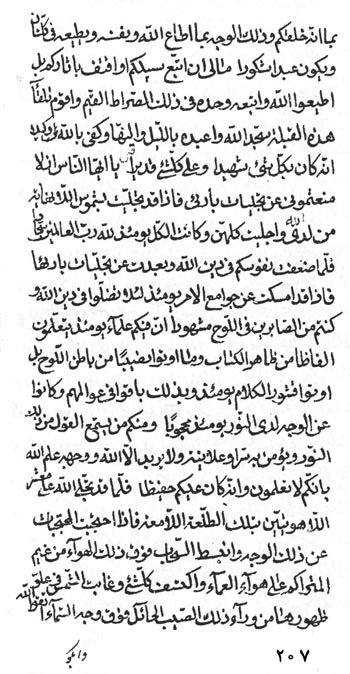 بما انه خلقكم وذلك الوجيه بما اطاع الله ونفسه ويطيعه في كل شان
ويكون عبدا شكورا مالى ان اتبع سبيلكم او اقف باثاركم بل
اطيعوا الله واتبعه وحده في ذلك الصراط القيم واقوم تلقاء
هذه القبلة بحمد الله واعبده بالليل والنهار وكفى بالله
انه كان بكل شئ شهيدا وعلى كلشئ قديرا يا ايها الناس ان لا
منعتموني عن تجليات بارئي فاذا قد تجليت شموس اللانهاية
من لدى الله واجليت كلهن وكانت الكل يومئذ لله رب العالمين
فلما ضعفت نفوسكم في دين الله وبعدت عن تجليات بارئها
فاذا قد امسكت عن جوامع الامر يومئذ لئلا تضلوا في دين الله و
كنتم من الصابرين في اللوح مشهودا ان فيكم علماء يومئذ يتعلمون
الفاظا من ظاهر الكتاب وما اوتوا نصيبا من باطن اللوح بل
اوتوا قشور الكلام يومئذ وبذلك باقوا في عوالمهم وكانوا
عن الوجه لدى النور يومئذ محجوبا ومنكم من يستمع القول من
النور ويؤمن به سرا وعلانية ولا يريد الا الله ووجهه علم الله
بانكم لا تعلمون وانه كان عليكم حفيظا فلما قد تجلى الله على
اللاهوتيين بتلك الطلعة اللامعة فاذا احتجبت المحتجبات
عن ذلك الوجه وانبسط السحاب فوق ذلك الهواء من غيم
المتراكم على هواء العماء وانكسف كلشئ وغاب الشمس في علو
ظهورها من وراء ذلك الصيب الحائل فوق وجه السماء انقوا الله
٢٠٧